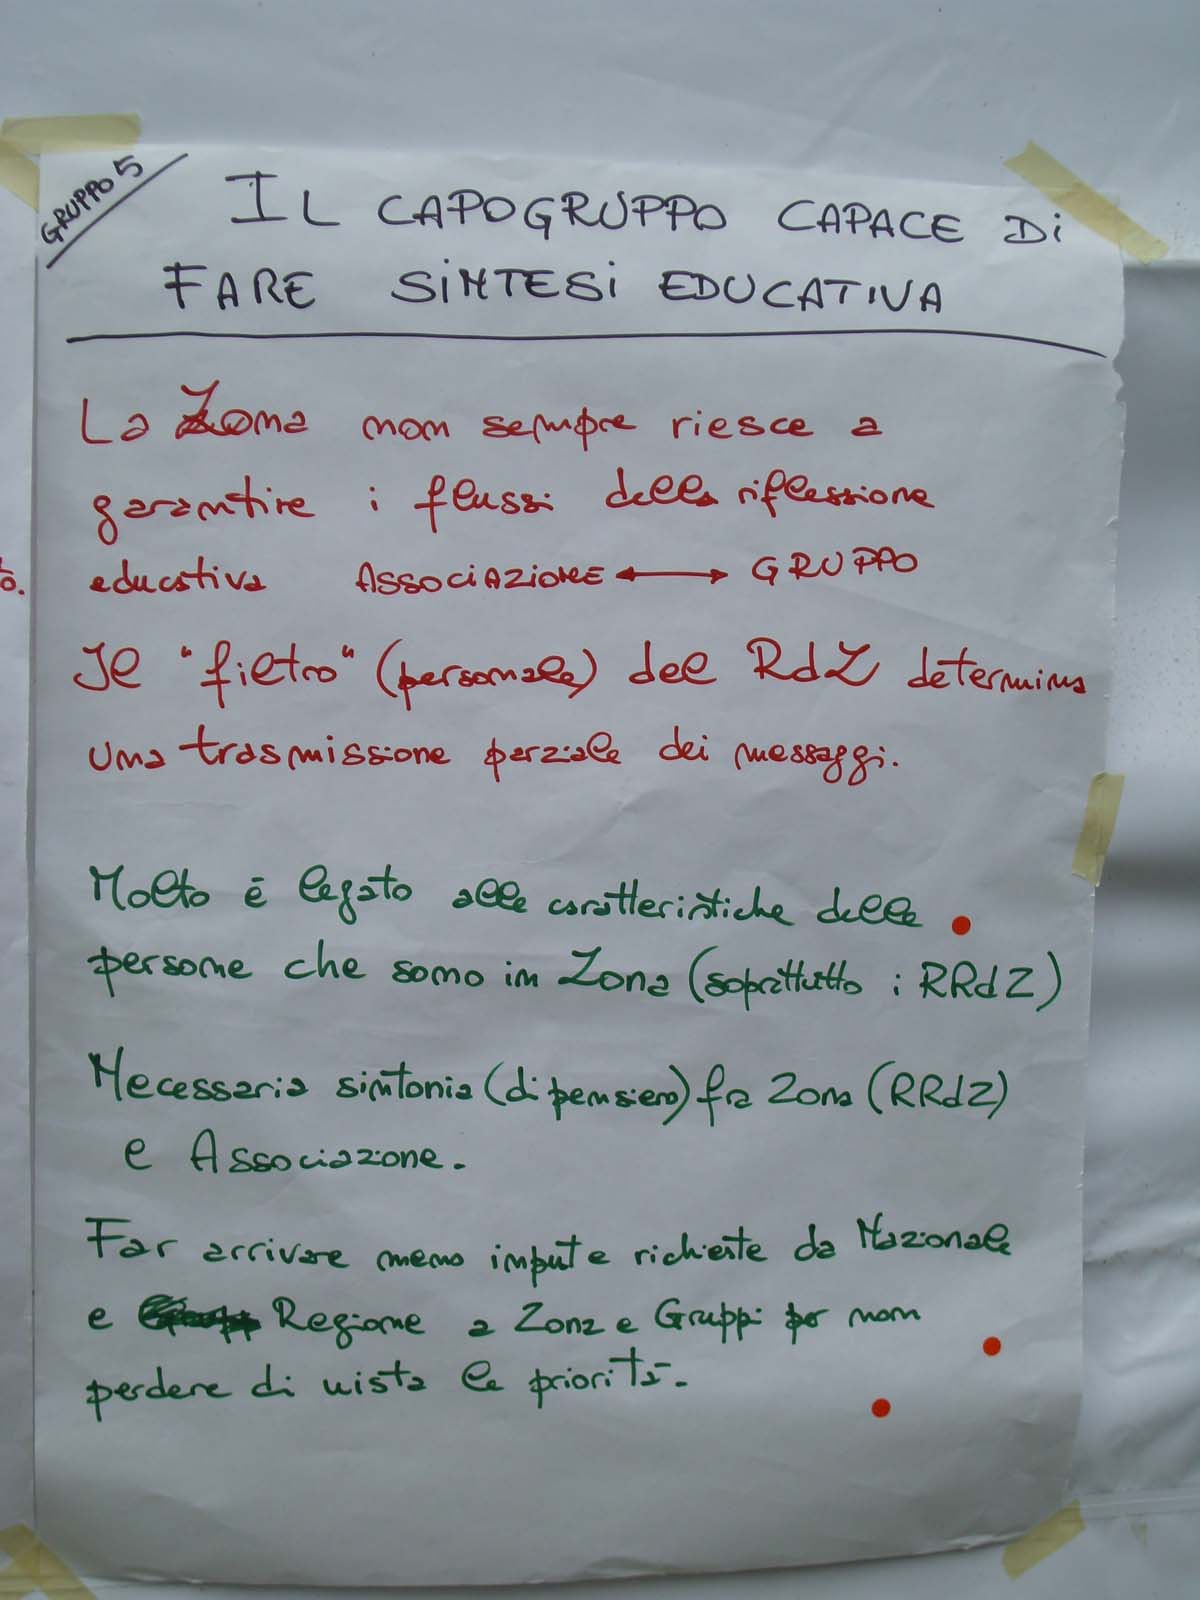 GRUPPO 5
IL CAPOGRUPPO CAPACE Di
FARE SiNTESi EDUCATIVA
La Zona non sempre riesce a
garantire i flussi della riflessione
educativa ASSOCiAZIONE ←→ GRUPPO
Il "filtro" (personale) del RdZ determina
una trasmissione parziale dei messaggi.
Molto è legato alle caratteristiche delle
persone che sono in Zona (soprattutto i RRdZ)
Necessaria sintonia (di pensiero) fra Zona (RRdZ)
e Associazione.
Far arrivare meno input e richieste da Nazionale
e Regione a Zona e Gruppi per non
perdere di vista le priorità.